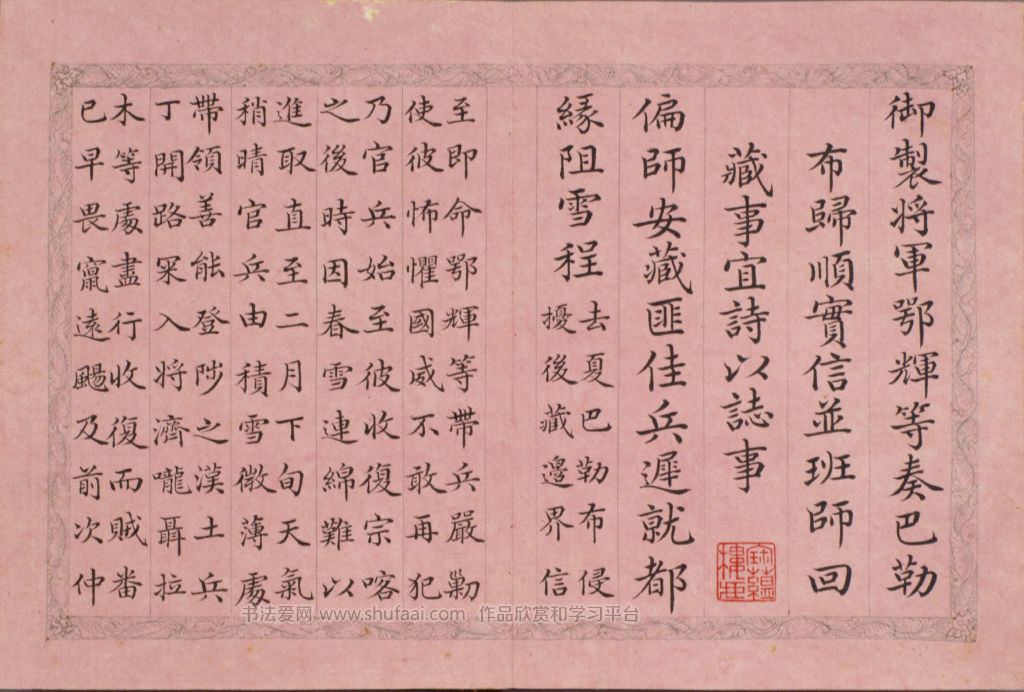 御製将軍鄂輝等奏巴勒
布歸順實信並班師回
藏事宜詩以誌事
偏師安藏匪佳兵遲就都
緣阻雪程
去夏巴勒布侵
擾後藏邊界信
至即命鄂輝等帶兵嚴勦
使彼怖懼國威不敢再犯
乃官兵始至彼收復宗喀
之後時因春雪連綿難以
進取直至二月下旬天氣
稍晴官兵由積雪微薄處
帶領善能登陟之漢土兵
丁開路冞入将濟嚨聶拉
木等處盡行收復而賊番
已早畏竄遠颺及前次仲
书法爱网 www.shufaai.com 作品欣赏和学习平台